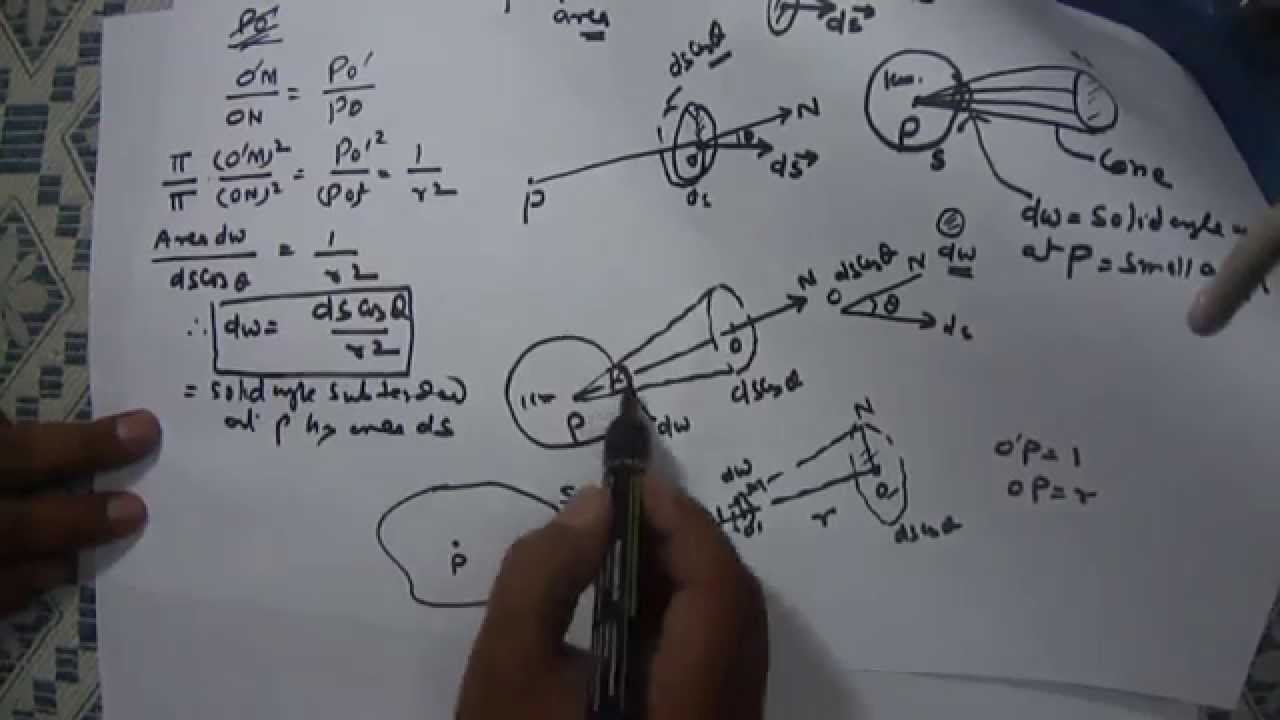 PO'
O'M/ON = PO'/PO
π/π · (O'M)²/(ON)² = PO'²/(PO)² = 1/r²
Area dw/ds cos θ = 1/r²
∴ dw = ds cos θ/r²
= solid angle subtended
at P by area ds
area
ds
ds cos θ
N
θ
ds
O
ds
P
1cm.
P
S
Cone
dw = Solid angle
at P = small
dw
N
O
ds cos θ
P
dw
ds cos θ
N
O
θ
ds
P
S
dw
M
O'
r
N
O
ds cos θ
O'P = 1
OP = r